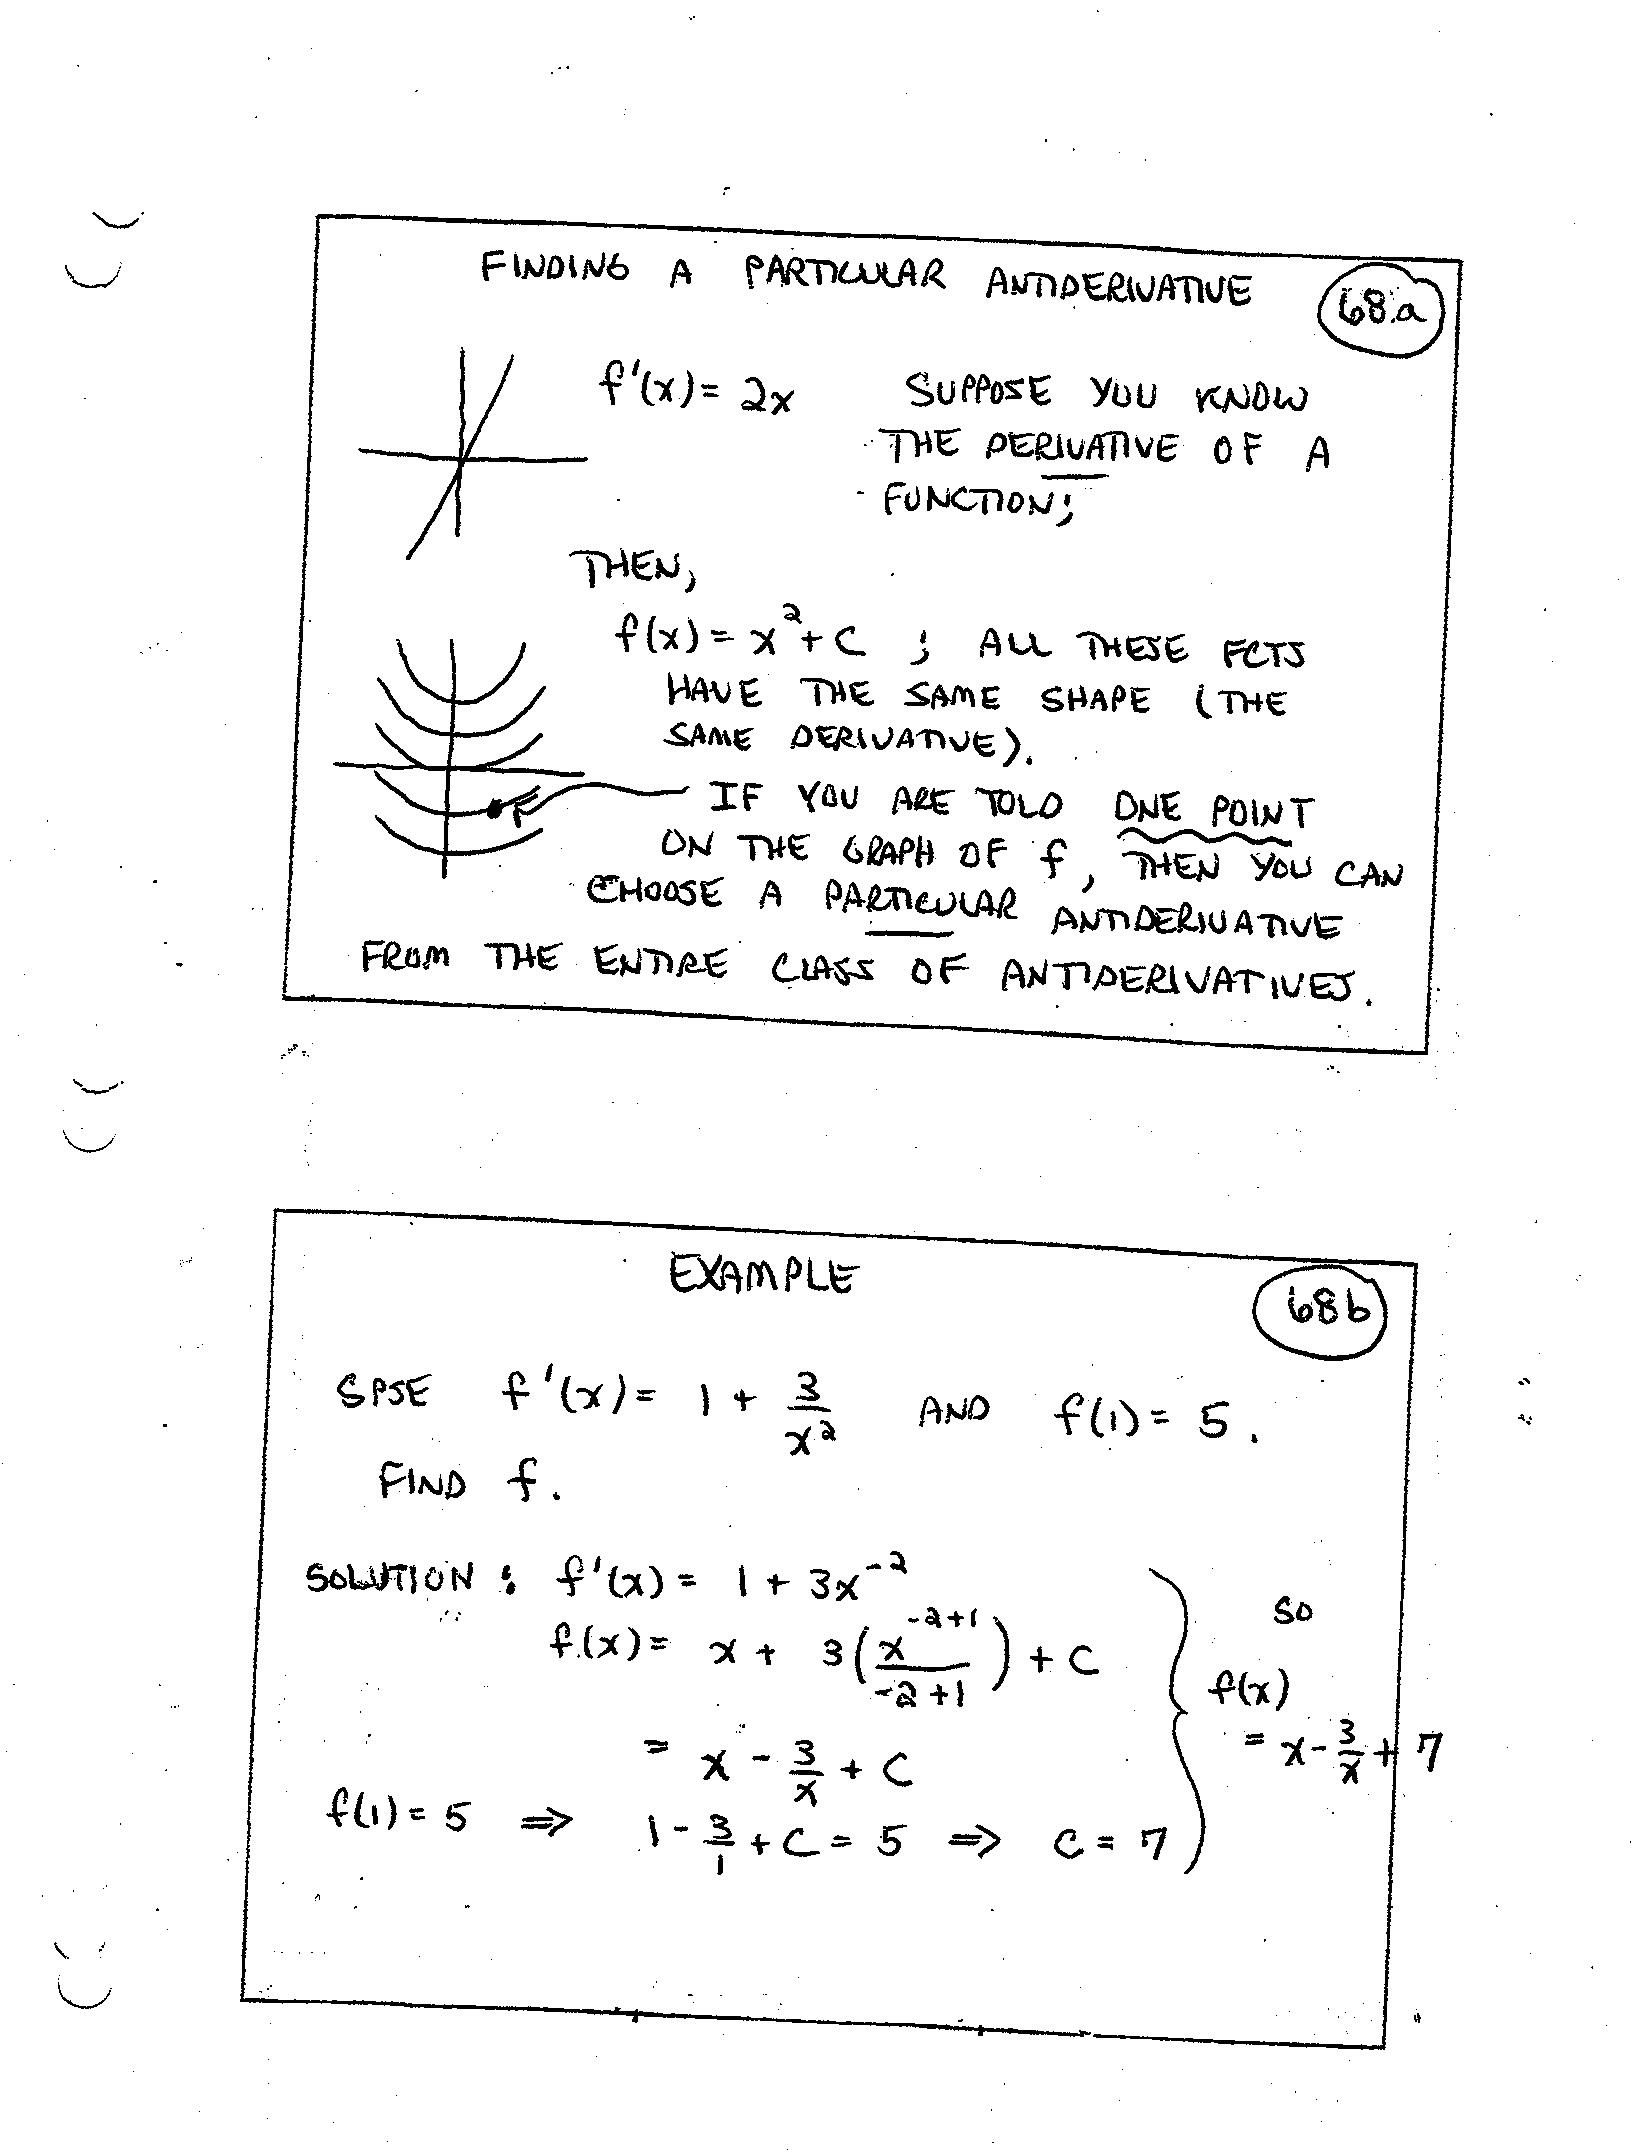 FINDING A PARTICULAR ANTIDERIVATIVE
68.a
f'(x) = 2x SUPPOSE YOU KNOW
THE DERIVATIVE OF A
FUNCTION;
THEN,
f(x) = x² + C ; ALL THESE FCTS
HAVE THE SAME SHAPE (THE
SAME DERIVATIVE).
IF YOU ARE TOLD ONE POINT
ON THE GRAPH OF f, THEN YOU CAN
CHOOSE A PARTICULAR ANTIDERIVATIVE
FROM THE ENTIRE CLASS OF ANTIDERIVATIVES.
EXAMPLE
68b
SPSE f'(x) = 1 + 3/x² AND f(1) = 5.
FIND f.
SOLUTION: f'(x) = 1 + 3x⁻²
f(x) = x + 3(x⁻²⁺¹/-2+1) + C
= x - 3/x + C
f(1) = 5 ⇒ 1 - 3/1 + C = 5 ⇒ C = 7
SO
f(x)
= x - 3/x + 7